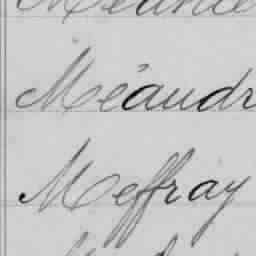 Méaudr
Meffray